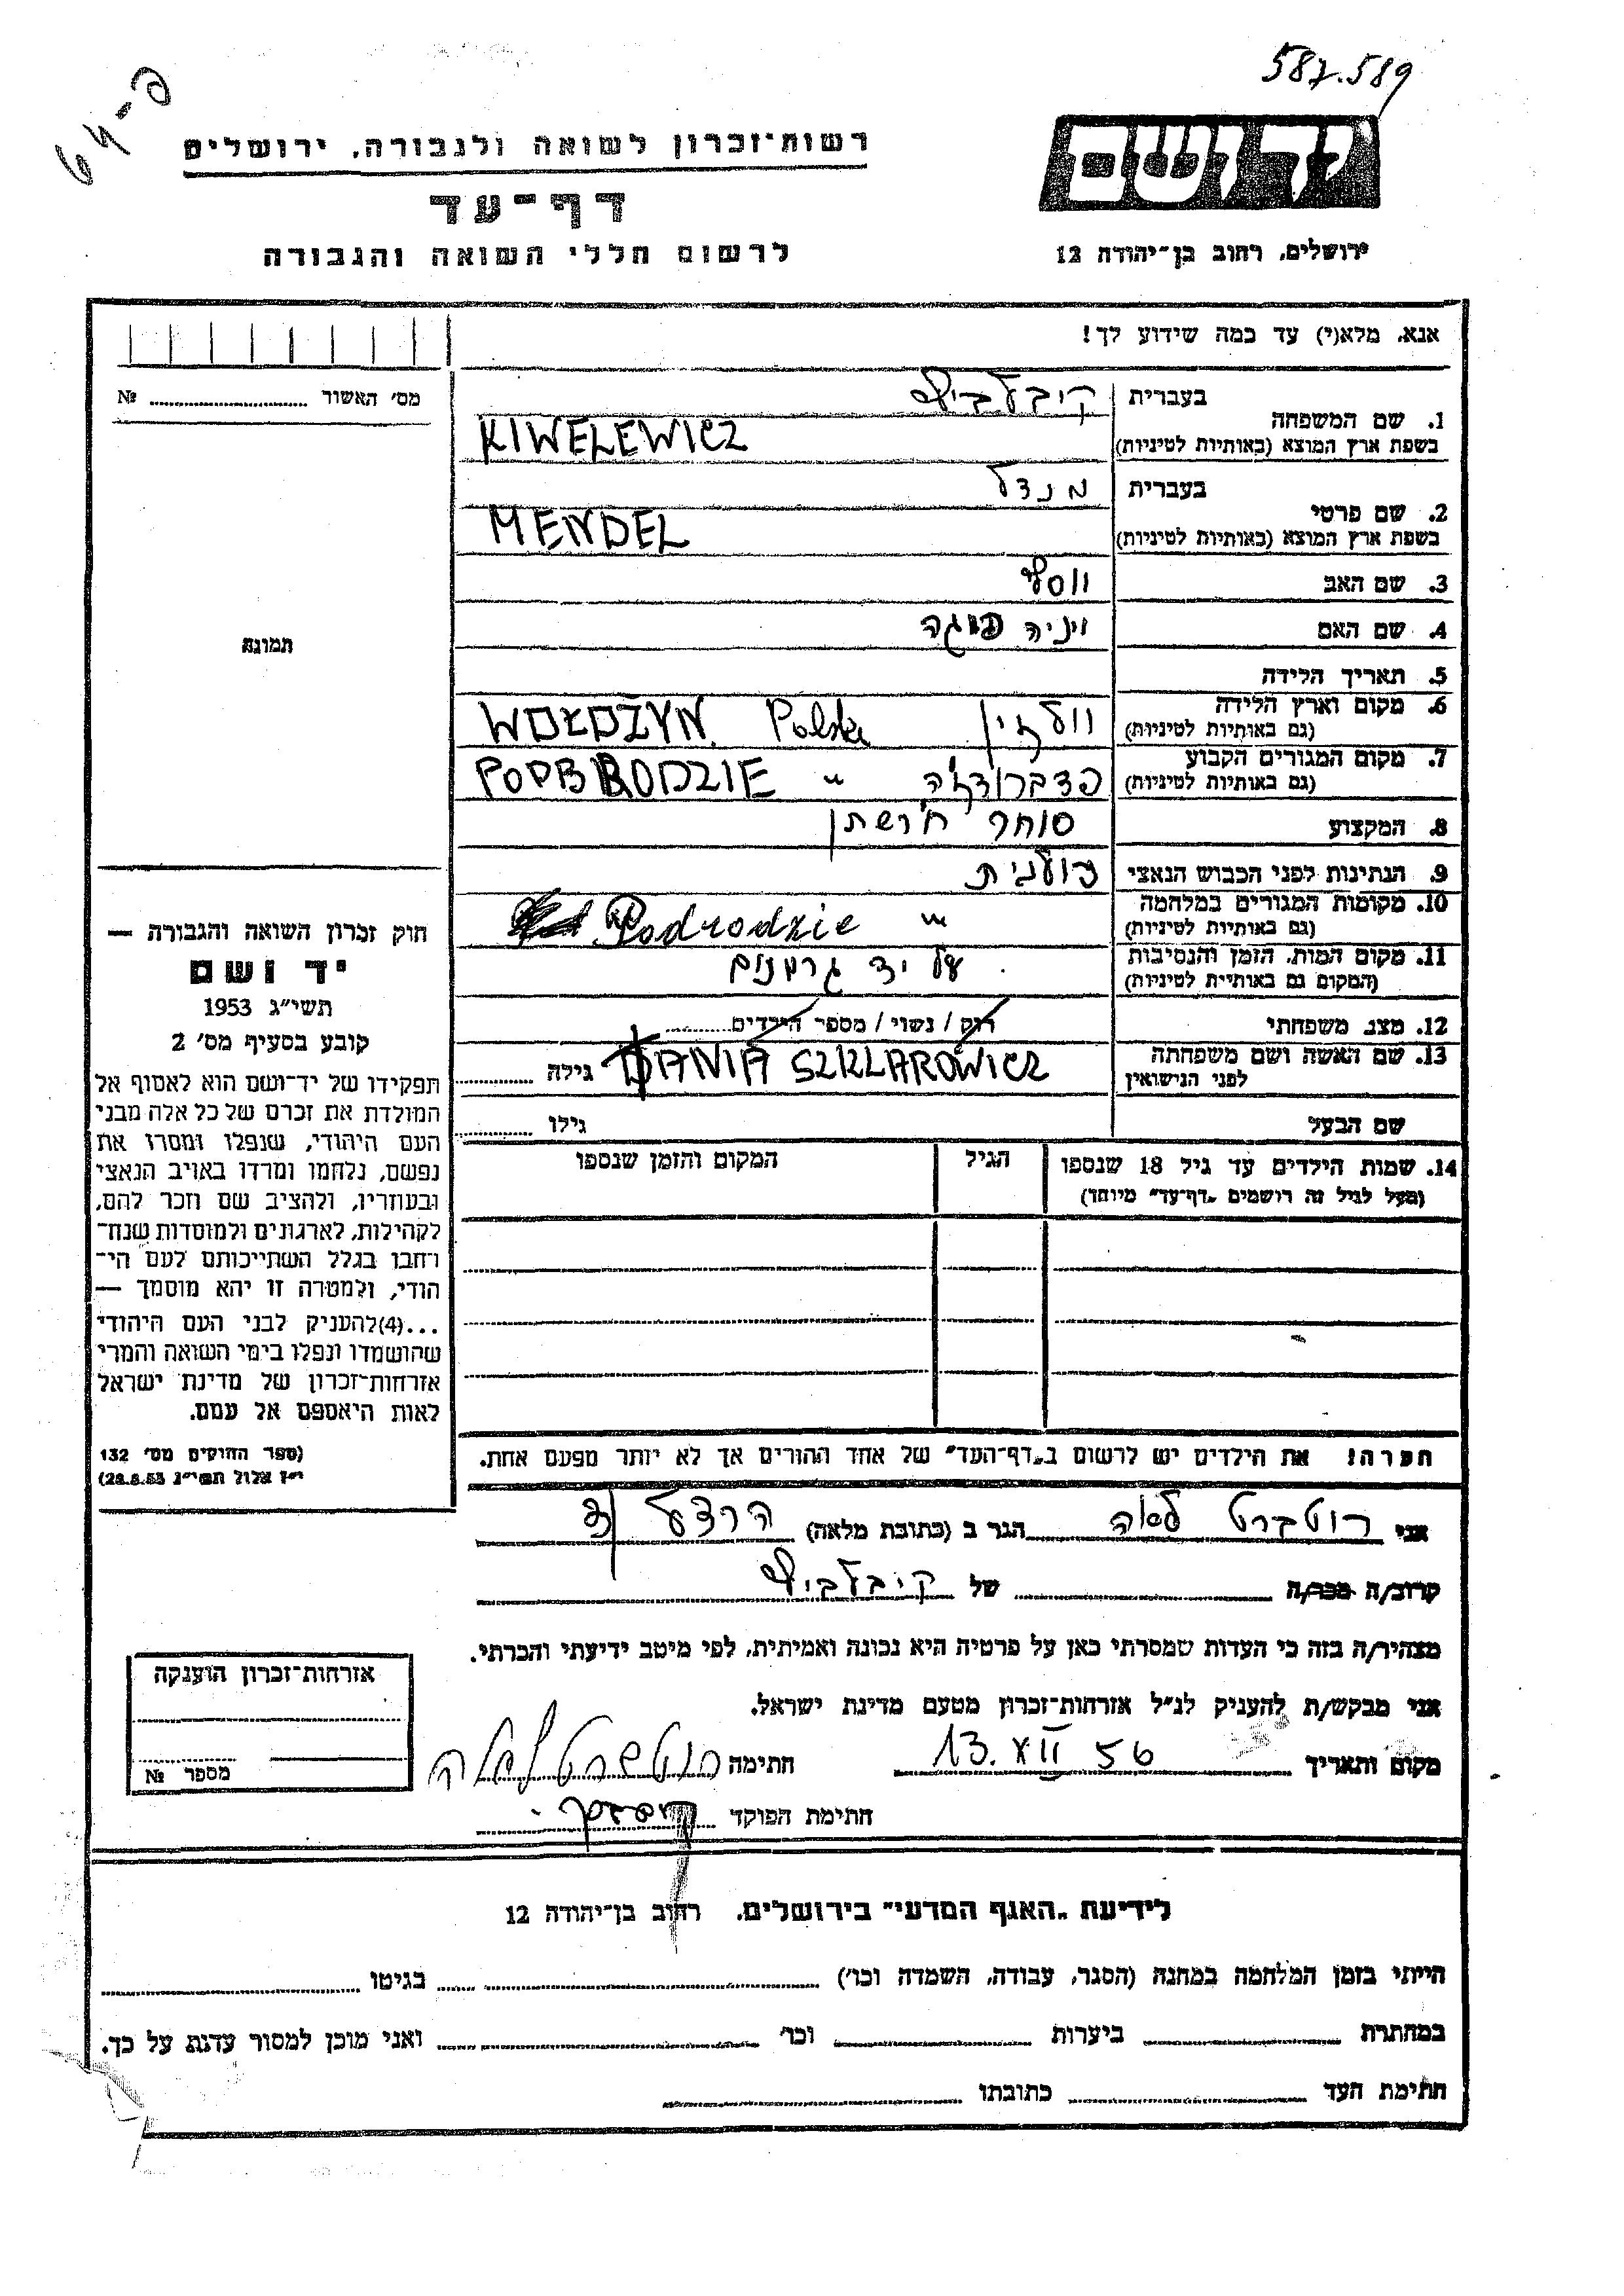 587.589
רשות־זכרון לשואה ולגבורה, ירושלים
ידושם
דף־עד
לרשום חללי השואה והגבורה
ירושלים, רחוב בן־יהודה 12
אנא, מלא(י) עד כמה שידוע לך!
מס׳ האשור № ........
בעברית
1. שם המשפחה
בשפת ארץ המוצא (באותיות לטיניות)
קיבלביץ
KIWELEWICZ
בעברית
2. שם פרטי
בשפת ארץ המוצא (באותיות לטיניות)
מנדל
MENDEL
3. שם האב
4. שם האם
תמונה
5. תאריך הלידה
6. מקום וארץ הלידה
(גם באותיות לטיניות)
וולוז׳ין Polska WOŁOŻYN.
7. מקום המגורים הקבוע
(גם באותיות לטיניות)
פדברודזה " PODBRODZIE
8. המקצוע סוחר
9. הנתינות לפני הכבוש הנאצי פולנית
10. מקומות המגורים במלחמה
(גם באותיות לטיניות)
" Podrodzie
11. מקום המות, הזמן והנסיבות
(המקום גם באותיות לטיניות)
על יד גרמנים
12. מצב משפחתי רווק / נשוי / מספר הילדים........
13. שם האשה ושם משפחתה
לפני הנישואין
SZKLAROWICZ גילה ........
שם הבעל גילו ........
14. שמות הילדים עד גיל 18 שנספו
(מעל לגיל זה רושמים „דף־עד״ מיוחד)
הגיל
המקום והזמן שנספו
חוק זכרון השואה והגבורה —
יד ושם
תשי״ג 1953
קובע בסעיף מס׳ 2
תפקידו של יד־ושם הוא לאסוף אל
המולדת את זכרם של כל אלה מבני
העם היהודי, שנפלו ומסרו את
נפשם, נלחמו ומרדו באויב הנאצי
ובעוזריו, ולהציב שם וזכר להם,
לקהילות, לארגונים ולמוסדות שנח־
רחבו בגלל השתייכותם לעם הי־
הודי, ולמטרה זו יהא מוסמך —
...(4)להעניק לבני העם היהודי
שהושמדו ונפלו בימי השואה והמרי
אזרחות־זכרון של מדינת ישראל
לאות היאספם אל עמם.
(ספר החוקים מס׳ 132
י״ז אלול תשי״ג 28.8.53)
הערה! את הילדים יש לרשום ב„דף־העד״ של אחד ההורים אך לא יותר מפעם אחת.
אני רוטברט לאה הגר ב (כתובת מלאה)
קרוב/ה מכר/ה ........ של קיבלביץ
מצהיר/ה בזה כי העדות שמסרתי כאן על פרטיה היא נכונה ואמיתית, לפי מיטב ידיעתי והכרתי.
אני מבקש/ת להעניק לנ״ל אזרחות־זכרון מטעם מדינת ישראל.
מקום ותאריך 13. XII 56 חתימה רוטברט לאה
חתימת הפוקד
אזרחות־זכרון הוענקה
מספר №
לידיעת „האגף המדעי״ בירושלים, רחוב בן־יהודה 12
הייתי בזמן המלחמה במחנה (הסגר, עבודה, השמדה וכו׳) ........ בגיטו ........
במחתרת ........ ביערות ........ וכו׳ ........ ואני מוכן למסור עדות על כך.
חתימת העד ........ כתובתו ........